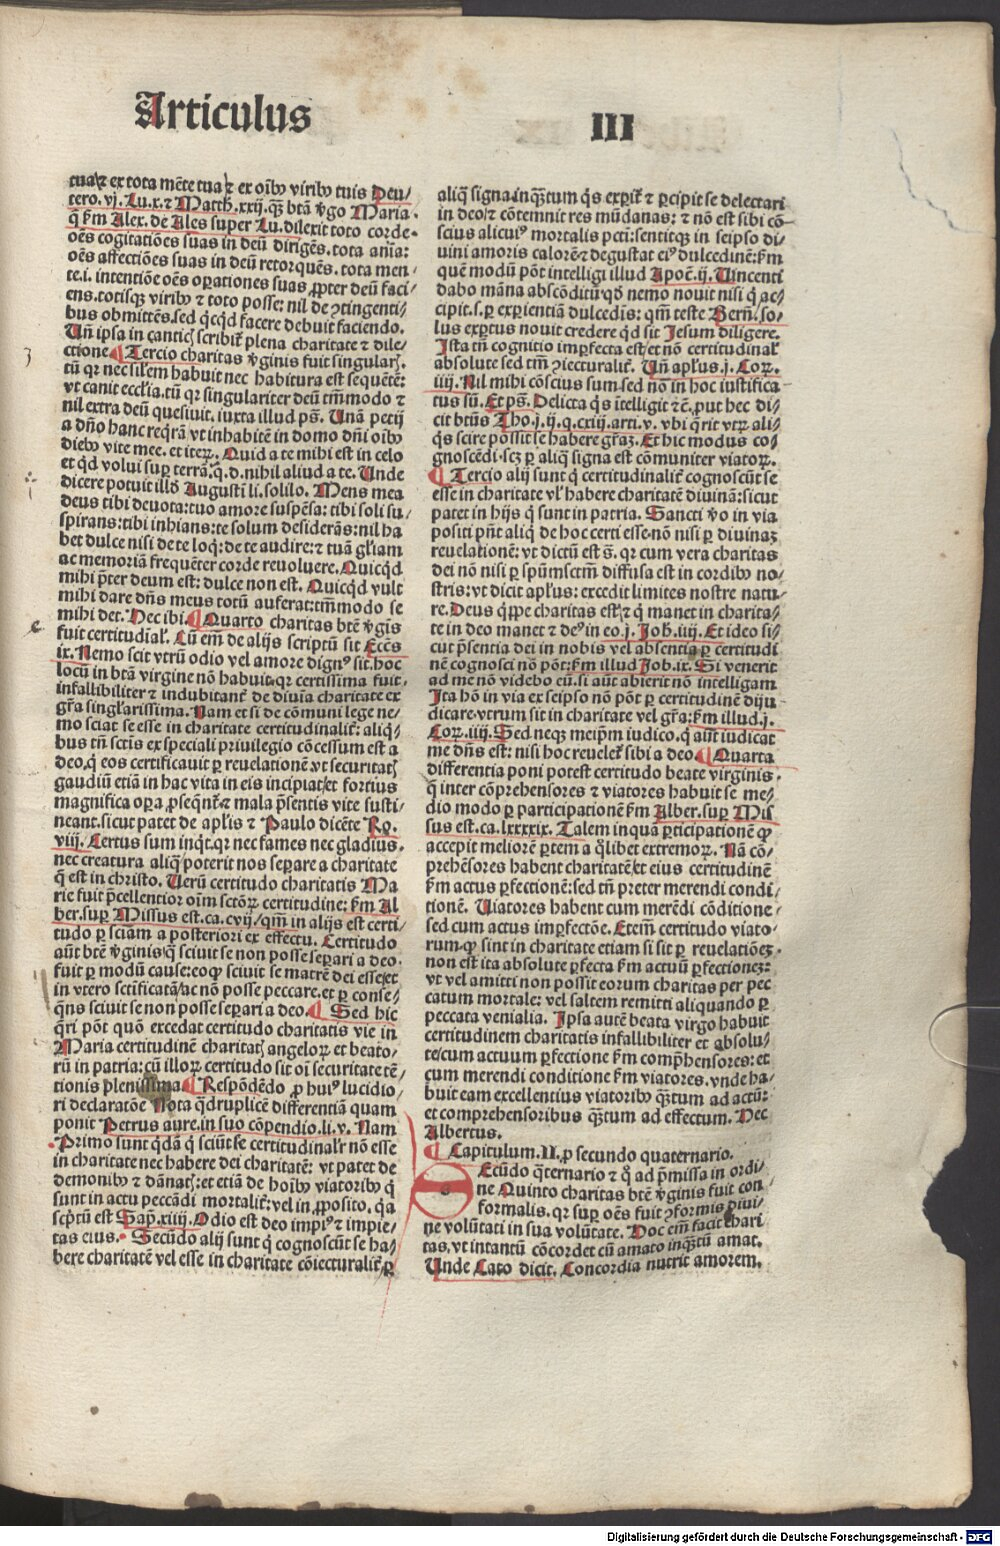 Articulus III
tua/⁊ ex tota mẽte tua/⁊ ex oĩbꝰ viribꝰ tuis Deu/
tero. vj. Lu.x.⁊ Matth.xxij. qꝫ btã ṽgo Maria.
q̃ ẜm Alex. de Ales super Lu. dilexit toto corde.
oẽs cogitatiões suas in deũ dirigẽs. tota aĩa:
oẽs affectiões suas in deũ retorquẽs. tota men/
te.i. intentiõe oẽs oꝑationes suas ꝓpter deũ faci/
ens. totisqꝫ viribꝰ ⁊ toto posse: nil de ꝯtingenti/
bus obmittẽs. sed q̇cqd facere debuit faciendo.
Uñ ipsa in canticꝭ scribit̃ plena charitate ⁊ dile/
ctione. ¶ Tercio charitas ṽginis fuit singularꝭ.
tũ qꝛ nec siłem habuit nec habitura est sequẽtẽ:
vt canit eccłia. tũ qꝛ singulariter deũ tm̃modo ⁊
nil extra deũ quesiuit. iuxta illud ps̃. Unã petij
a dño hanc reqrã vt inhabitẽ in domo dñi oĩbꝰ
diebꝰ vite mee. et iteꝝ. Quid a te mihi est in celo
et qd volui suꝑ terrã. q̃.d. nihil aliud a te. Unde
dicere potuit illd̃ Augusti li. solilo. Mens mea
deus tibi deuota: tuo amore suspẽsa: tibi soli su/
spirans: tibi inhians: te solum desiderãs: nil ha/
bet dulce nisi de te loq̇: de te audire: ⁊ tuã głiam
ac memoriã frequẽter corde reuoluere. Quicqd
mihi p̃ter deum est: dulce non est. Quicqd vult
mihi dare dñs meus totũ auferat: tm̃modo se
mihi det. Hec ibi. ¶ Quarto charitas btẽ ṽgĩs
fuit certitudiał. Cũ em̃ de alijs scriptũ sit Eccẽs
ix. Nemo scit vtrũ odio vel amore dignꝰ sit. hoc
locũ in btã virgine nõ habuit. qꝛ certissima fuit.
infallibiliter ⁊ indubitant̃ de diuĩa charitate ex
gr̃a singłarissima. Nam et si de cõmuni lege ne/
mo sciat se esse in charitate certitudinalit̃: aliq̇/
bus tñ sctĩs ex speciali priuilegio cõcessum est a
deo. q̇ eos certificauit ꝑ reuelationẽ. vt securitatꝭ
gaudiũ etiã in hac vita in eis incipiat/et fortius
magnifica oꝑa ꝓseq̃nt̃ ⁊ mala p̃sentis vite susti/
neant. sicut patet de apłis ⁊ Paulo dicẽte Ro.
viij. Certus sum inq̇t. qꝛ nec fames nec gladius.
nec creatura aliq̃ poterit nos seꝑare a charitate
q̃ est in christo. Uerũ certitudo charitatis Ma
rie fuit p̃cellentior oĩm sctõꝝ certitudine: ẜm Al
ber. suꝑ Missus est. ca. cvij/ qm̃ in alijs est certi/
tudo ꝑ sciam a posteriori ex effectu. Certitudo
aũt btẽ ṽginis/ q̃ sciuit se non posse seꝑari a deo.
fuit ꝑ modũ cause: eo qꝙ sciuit se matrẽ dei esse/et
in vtero sctĩficatã/ac nõ posse peccare. et ꝑ conse/
q̃ns sciuit se non posse seꝑari a deo. ¶ Sed hic
q̃ri põt quõ excedat certitudo charitatis vie in
Maria certitudinẽ charitatꝭ angeloꝝ et beato/
rũ in patria: cũ illoꝝ certitudo sit oĩ securitate tẽ/
tionis plenissima. ¶ Respõdẽdo ꝓ huiꝰ lucidio/
ri declaratõe Nota q̃druplicẽ differentiã quam
ponit Petrus aure. in suo cõpendio. li. v. Nam
Primo sunt q̃dã q̇ sciũt se certitudinałr nõ esse
in charitate nec habere dei charitatẽ: vt patet de
demonibꝰ ⁊ dãnatꝭ: et etiã de hoĩbꝰ viatoribꝰ q̇
sunt in actu peccãdi mortalit̃: vel in ꝓposito. q̃a
scp̃tũ est Sap̃. xiiij. Odio est deo impiꝰ ⁊ impie/
tas eius. Secũdo alij sunt q̇ cognoscũt se ha/
bere charitatẽ vel esse in charitate cõiecturalit̃: ꝑ
aliq̃ signa. inqꝫtum q̃s exꝑit̃ ⁊ ꝑcipit se delectari
in deo/⁊ cõtemnit res mũdanas: ⁊ nõ est sibi cõ/
scius alicuiꝰ mortalis pctĩ: sentitqꝫ in seipso di/
uini amoris calorẽ ⁊ degustat eiꝰ dulcedinẽ: ẜm
quẽ modũ põt intelligi illud Apoc̃.ij. Uincenti
dabo mãna abscõditũ: qd̃ nemo nouit nisi q̇ ac/
cipit. s. ꝑ exꝑientiã dulcedĩs: qm̃ teste Berñ. so/
lus exꝑtus nouit credere qd sit Jesum diligere.
Ista tñ cognitio imꝑfecta est/et nõ certitudinał
absolute sed tm̃ ꝯiecturalit̃. Uñ apłus. j. Coꝝ.
iiij. Nil mihi cõscius sum sed nõ in hoc iustifica
tus sũ. Et ps̃. Delicta q̃s ĩtelligit ⁊c̃. put hec di/
cit btũs Tho. j. ij. q. cxij. arti. v. vbi q̃rit vtꝝ ali/
q̃s scire possit se habere gr̃az. Et hic modus co/
gnoscẽdi. scꝫ ꝑ aliq̃ signa est cõmuniter viatoꝝ.
¶ Tercio alij sunt q̇ certitudinalit̃ cognoscũt se
esse in charitate vł habere charitatẽ diuinã: sicut
patet in hijs q̇ sunt in patria. Sancti ṽo in via
positi pñt aliq̃ de hoc certi esse. nõ nisi ꝑ diuinaꝫ
reuelationẽ: vt dictũ est s̃. qꝛ cum vera charitas
dei nõ nisi ꝑ spũmsctm̃ diffusa est in cordibꝰ no/
stris: vt dicit apłus: excedit limites nostre natu/
re. Deus q̇ppe charitas est/⁊ q̇ manet in charita/
te in deo manet ⁊ deꝰ in eo. j. Joh̃. iiij. Et ideo si/
cut p̃sentia dei in nobis vel absentia ꝑ certitudi
nẽ cognosci nõ põt: ẜm illud Job. ix. Si venerit
ad me nõ videbo eũ. si aũt abierit nõ intelligam
Ita hõ in via ex seipso nõ põt ꝑ certitudinẽ diiu/
dicare. vtrum sit in charitate vel gr̃a: ẜm illud. j.
Coꝝ. iiij. Sed neqꝫ meip̃m iudico. q̇ aũt iudicat
me dñs est: nisi hoc reuelet̃ sibi a deo. ¶ Quarta
differentia poni potest certitudo beate virginis.
q̃ inter cõprehensores ⁊ viatores habuit se me/
dio modo ꝑ participationẽ ẜm Alber. suꝑ Mis
sus est. ca. lxxxxix. Talem inquã ꝑticipationẽ qꝙ
accepit meliorẽ ꝑtem a q̃libet extremoꝝ. Nã cõ/
prehẽsores habent charitatẽ/et eius certitudinẽ
ẜm actus ꝑfectionẽ: sed tñ preter merendi condi/
tionẽ. Uiatores habent cum merẽdi cõditione/
sed cum actus imꝑfectõe. Etem̃ certitudo viato/
rum. qꝙ sint in charitate etiam si sit ꝑ reuelatiõeꝫ.
non est ita absolute ꝑfecta ẜm actuũ ꝑfectioneꝫ:
vt vel amitti non possit eorum charitas per pec
catum mortale: vel saltem remitti aliquando ꝑ
peccata venialia. Ipsa autẽ beata virgo habuit
certitudinem charitatis infallibiliter et absolu/
te/cum actuum ꝑfectione ẜm comp̃hensores: et
cum merendi conditione ẜm viatores. vnde ha/
buit eam excellentius viatoribꝰ qꝫtum ad actũ:
et comprehensoribus qꝫtum ad effectum. Hec
Albertus.
¶ Capitulum. II. ꝓ secundo quaternario.
SEcũdo q̃ternario ⁊ q̃ ad p̃missa in ordi/
ne Quinto charitas btẽ ṽginis fuit con
formalis. qꝛ suꝑ oẽs fuit ꝯformis diui/
ne volũtati in sua volũtate. Hoc em̃ facit chari
tas. vt intantũ cõcordet cũ amato inqꝫtũ amat.
Unde Cato dicit. Concordia nutrit amorem.
Digitalisierung gefördert durch die Deutsche Forschungsgemeinschaft - DFG